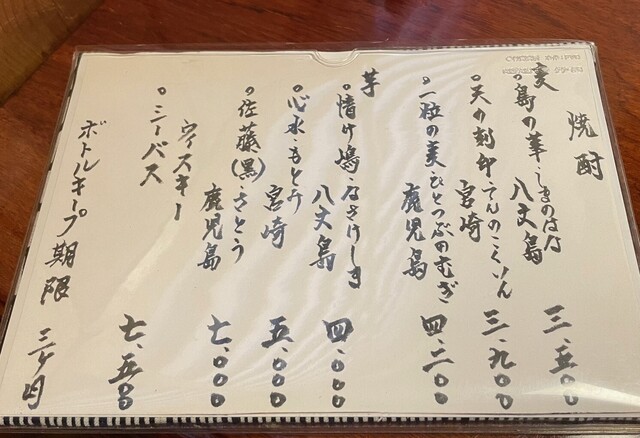 焼酎
麦
○島の華・しまのはな 八丈島 三、五〇〇
○天の刻印・てんのこくいん 宮崎 三、九〇〇
○一粒の麦・ひとつぶのむぎ 鹿児島 四、二〇〇
芋
○情け嶋・なさけしま 八丈島 四、〇〇〇
○心水・もとみ 宮崎 五、〇〇〇
○佐藤(黒)・さとう 鹿児島 七、〇〇〇
ウィスキー
○シーバス 七、五〇〇
ボトルキープ期限 三ヶ月